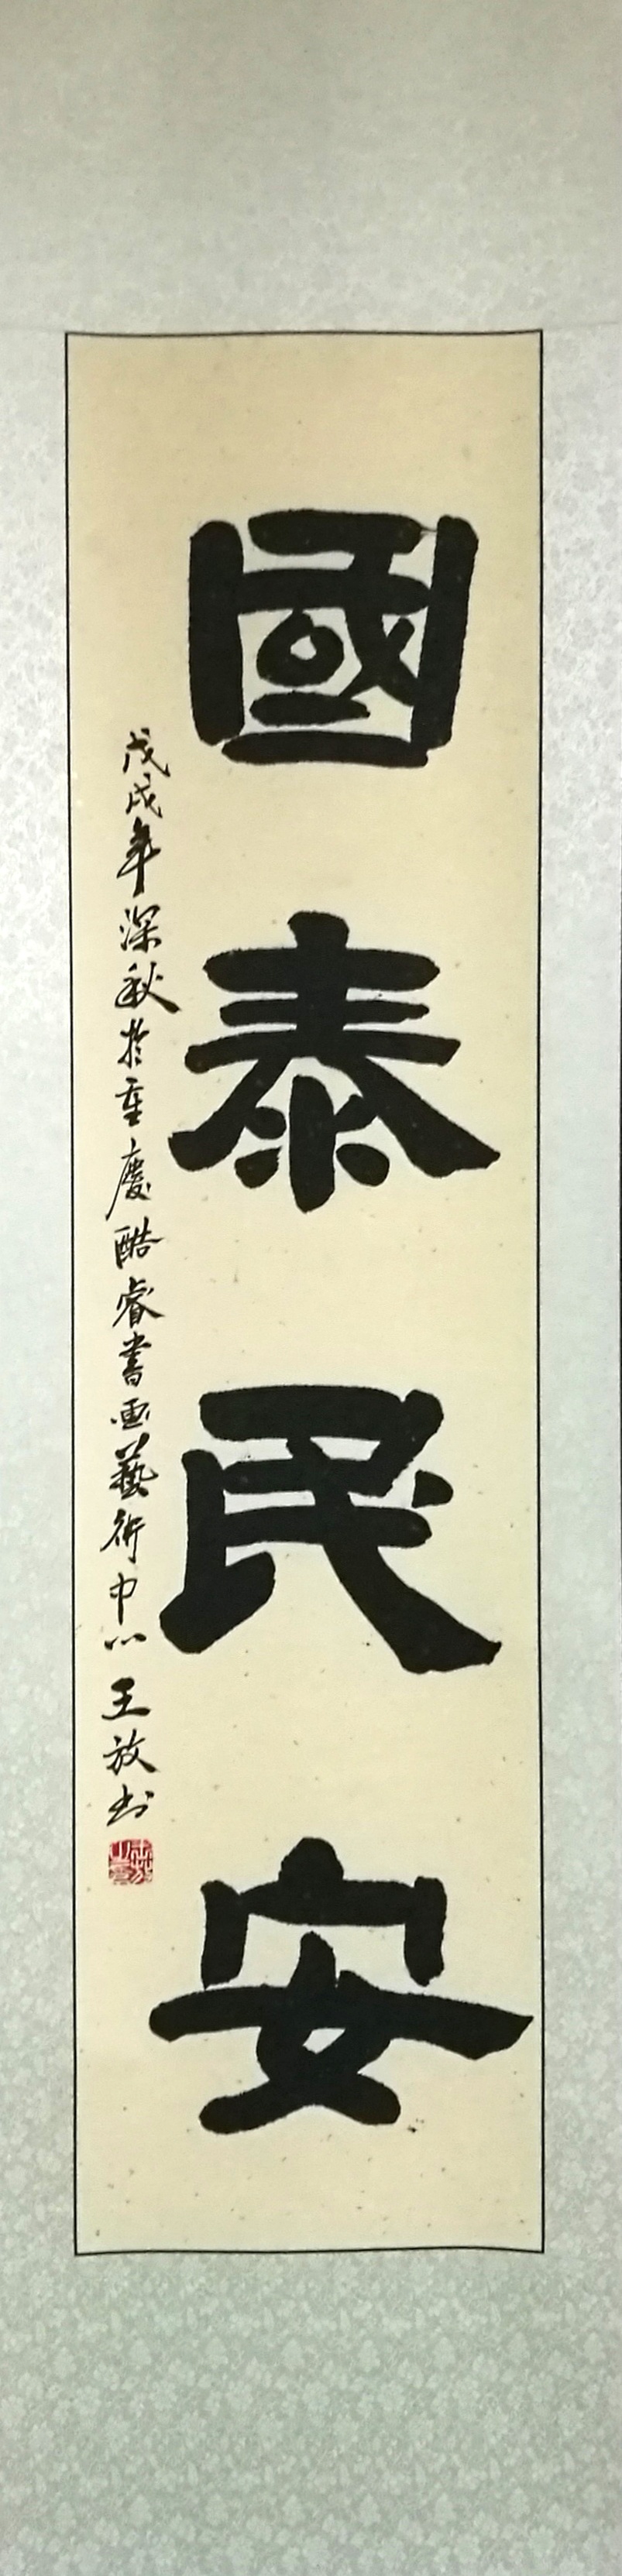 國泰民安
戊戌年深秋於重慶酷睿書画藝術中心王放书